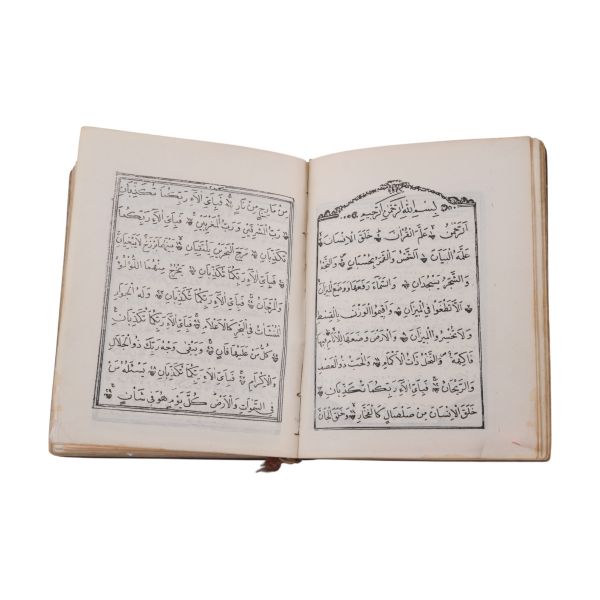 بِسْمِ اللهِ الرَّحْمٰنِ الرَّحِيمِ
اَلرَّحْمٰنُ عَلَّمَ الْقُرْاٰنَ خَلَقَ الْاِنْسَانَ
عَلَّمَهُ الْبَيَانَ اَلشَّمْسُ وَالْقَمَرُ بِحُسْبَانٍ وَالنَّجْمُ
وَالشَّجَرُ يَسْجُدَانِ وَالسَّمَاءَ رَفَعَهَا وَوَضَعَ الْمِيزَانَ
اَلَّا تَطْغَوْا فِي الْمِيزَانِ وَاَقِيمُوا الْوَزْنَ بِالْقِسْطِ
وَلَا تُخْسِرُوا الْمِيزَانَ وَالْاَرْضَ وَضَعَهَا لِلْاَنَامِ فِيهَا
فَاكِهَةٌ وَالنَّخْلُ ذَاتُ الْاَكْمَامِ وَالْحَبُّ ذُو الْعَصْفِ
وَالرَّيْحَانُ فَبِاَيِّ اٰلَاءِ رَبِّكُمَا تُكَذِّبَانِ
خَلَقَ الْاِنْسَانَ مِنْ صَلْصَالٍ كَالْفَخَّارِ وَخَلَقَ الْجَانَّ
مِنْ مَارِجٍ مِنْ نَارٍ فَبِاَيِّ اٰلَاءِ رَبِّكُمَا تُكَذِّبَانِ
رَبُّ الْمَشْرِقَيْنِ وَرَبُّ الْمَغْرِبَيْنِ فَبِاَيِّ اٰلَاءِ رَبِّكُمَا
تُكَذِّبَانِ مَرَجَ الْبَحْرَيْنِ يَلْتَقِيَانِ بَيْنَهُمَا بَرْزَخٌ لَا يَبْغِيَانِ
فَبِاَيِّ اٰلَاءِ رَبِّكُمَا تُكَذِّبَانِ يَخْرُجُ مِنْهُمَا اللُّؤْلُؤُ
وَالْمَرْجَانُ فَبِاَيِّ اٰلَاءِ رَبِّكُمَا تُكَذِّبَانِ وَلَهُ الْجَوَارِ
الْمُنْشَاٰتُ فِي الْبَحْرِ كَالْاَعْلَامِ فَبِاَيِّ اٰلَاءِ رَبِّكُمَا تُكَذِّبَانِ
كُلُّ مَنْ عَلَيْهَا فَانٍ وَيَبْقٰى وَجْهُ رَبِّكَ ذُو الْجَلَالِ
وَالْاِكْرَامِ فَبِاَيِّ اٰلَاءِ رَبِّكُمَا تُكَذِّبَانِ يَسْئَلُهُ مَنْ
فِي السَّمٰوَاتِ وَالْاَرْضِ كُلَّ يَوْمٍ هُوَ فِي شَاْنٍ